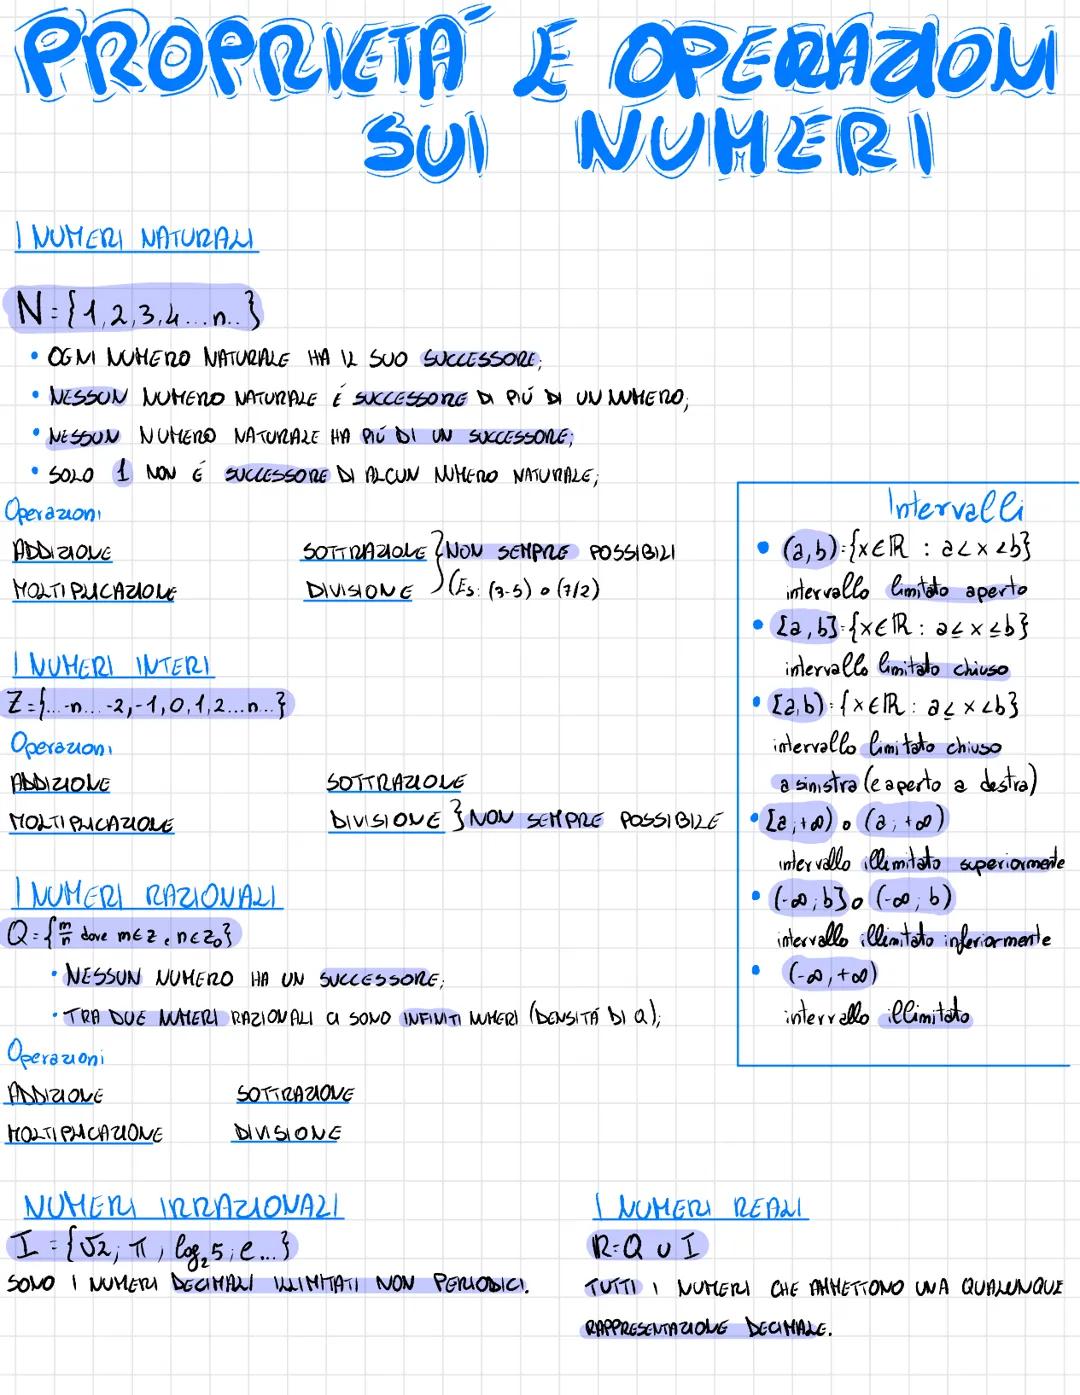 PROPRIETÀ E OPERAZIONI
SUI NUMERI
I NUMERI NATURALI
N={1,2,3,4...n..}
• OGNI NUMERO NATURALE HA IL SUO SUCCESSORE;
• NESSUN NUMERO NATURALE É SUCCESSORE DI PIÚ DI UN NUMERO;
• NESSUN NUMERO NATURALE HA PIÚ DI UN SUCCESSORE;
• SOLO 1 NON É SUCCESSORE DI ALCUN NUMERO NATURALE;
Operazioni
ADDIZIONE SOTTRAZIONE } NON SEMPRE POSSIBILI
MOLTIPLICAZIONE DIVISIONE (Es: (3-5) o (7/2)
I NUMERI INTERI
Z={...-n...-2,-1,0,1,2...n..}
Operazioni
ADDIZIONE SOTTRAZIONE
MOLTIPLICAZIONE DIVISIONE } NON SEMPRE POSSIBILE
I NUMERI RAZIONALI
Q={m/n dove m∈Z e n∈Z₀}
• NESSUN NUMERO HA UN SUCCESSORE;
• TRA DUE NUMERI RAZIONALI CI SONO INFINITI NUMERI (DENSITÁ DI Q);
Operazioni
ADDIZIONE SOTTRAZIONE
MOLTIPLICAZIONE DIVISIONE
Intervalli
• (a,b)={x∈ℝ : a<x<b}
intervallo limitato aperto
• [a,b]={x∈ℝ : a≤x≤b}
intervallo limitato chiuso
• [a,b)={x∈ℝ : a≤x<b}
intervallo limitato chiuso
a sinistra (e aperto a destra)
• [a;+∞) o (a;+∞)
intervallo illimitato superiormente
• (-∞;b] o (-∞;b)
intervallo illimitato inferiormente
• (-∞,+∞)
intervallo illimitato
NUMERI IRRAZIONALI
I={√2; π; log₂5; e...}
SONO I NUMERI DECIMALI ILLIMITATI NON PERIODICI.
I NUMERI REALI
ℝ=Q∪I
TUTTI I NUMERI CHE AMMETTONO UNA QUALUNQUE
RAPPRESENTAZIONE DECIMALE.